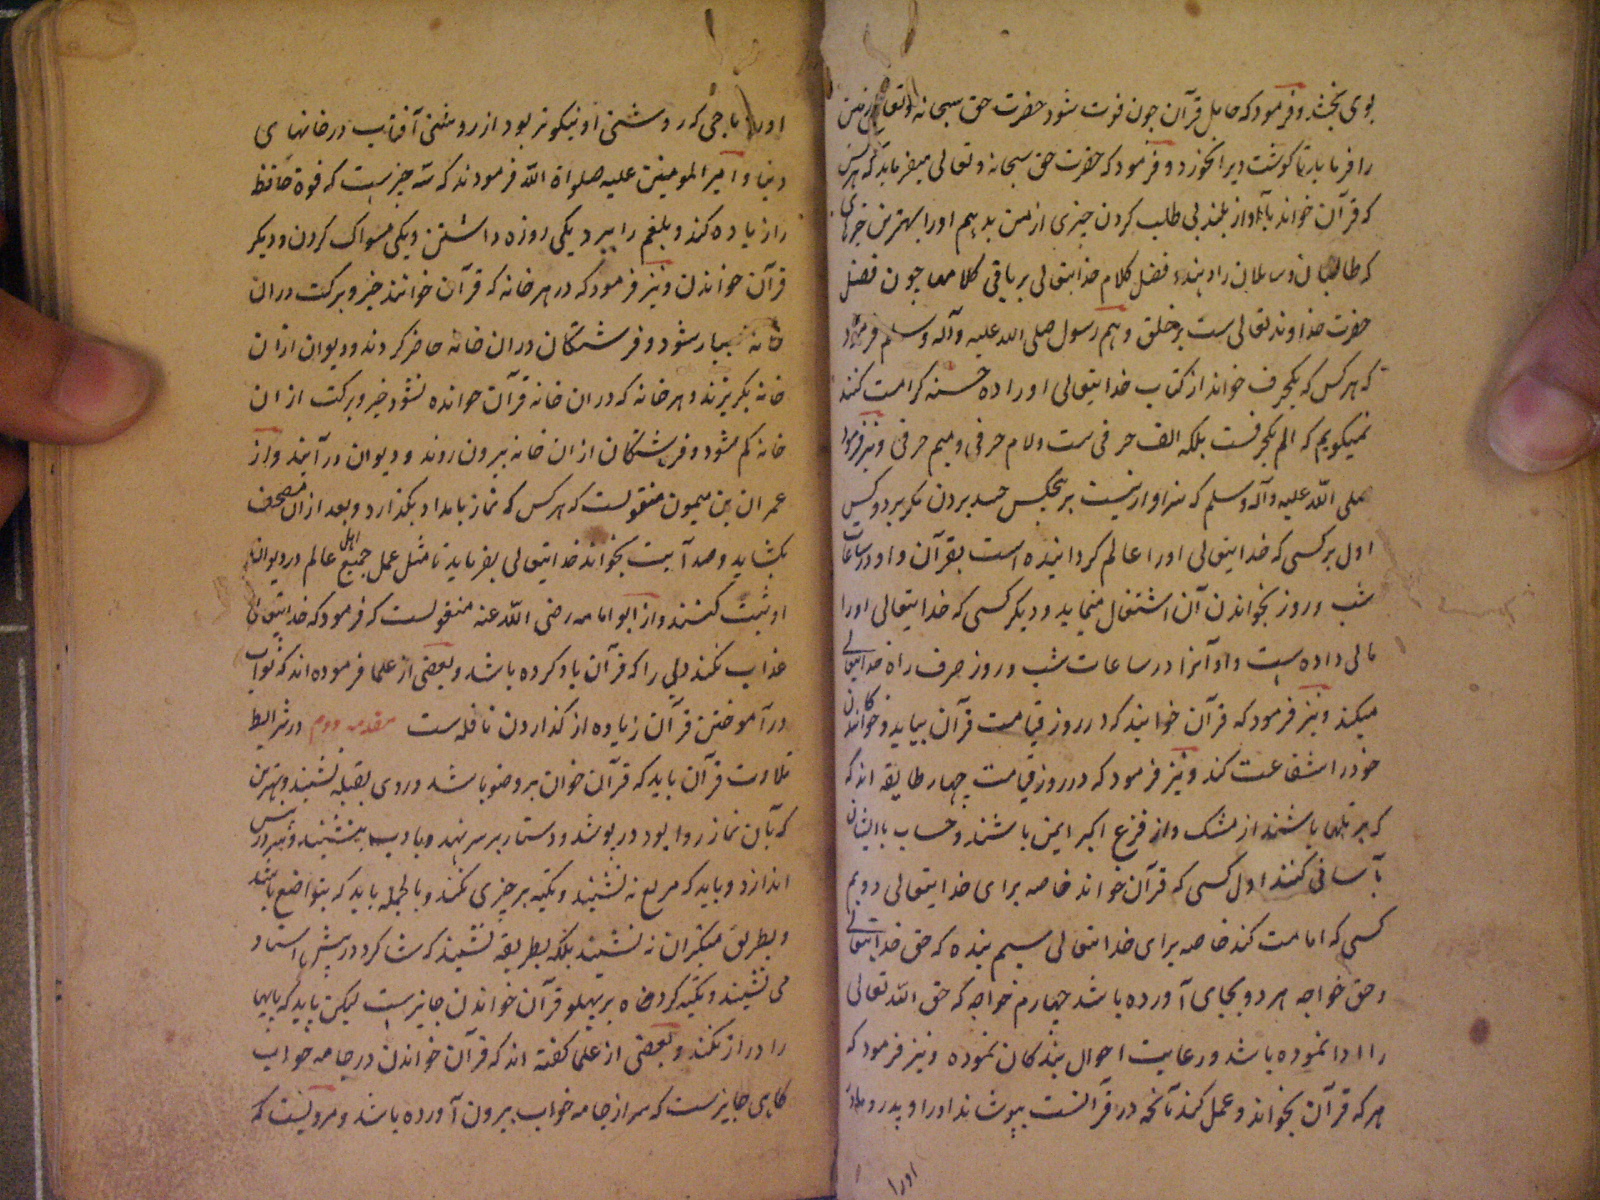 بوی بخشد و فرمود که حامل قرآن چون فوت شود حضرت حق سبحانه و تعالی زمین
را فرماید تا گوشت ویرا نخورد و فرمود که حضرت حق سبحانه و تعالی میفرماید که هرکس
که قرآن خواند بآواز بلند بی طلب کردن چیزی از من بدهم اورا بهترین چیزهای
که طالبان و سایلان را دهند و فضل کلام خدایتعالی بر باقی کلامها چون فضل
حضرت خداوند تعالی ست بر خلق و هم رسول صلی الله علیه وآله وسلم فرمود
که هرکس که یکحرف خواند از کتاب خدایتعالی اورا ده حسنه کرامت کنند
نمیگویم که الم یکحرفست بلکه الف حرفی ست ولام حرفی ومیم حرفی ونیز فرمود
صلی الله علیه وآله وسلم که سزاوار نیست بر هیچکس حسد بردن مگر بر دو کس
اول بر کسی که خدایتعالی اورا عالم گردانیده است بقرآن و او در ساعات
شب و روز بخواندن آن اشتغال مینماید و دیگر کسی که خدایتعالی اورا
مالی داده ست و او آنرا در ساعات شب و روز صرف راه خدایتعالی
میکند ونیز فرمود که قرآن خوانید که در روز قیامت قرآن بیاید و خوانندگان
خودرا شفاعت کند ونیز فرمود که در روز قیامت چهار طایفه اند که
که بر تلها باشند از مشک و از فزع اکبر ایمن باشند و حساب با ایشان
بآسانی کنند اول کسی که قرآن خواند خاصه برای خدایتعالی دویم
کسی که امامت کند خاصه برای خدایتعالی سیم بنده که حق خدایتعالی
و حق خواجه هر دو بجای آورده باشد چهارم خواجه که حق الله تعالی
را ادا نموده باشد و رعایت احوال بندکان نموده ونیز فرمود که
هر که قرآن بخواند و عمل کند بآنچه در قرآنست بپوشاند اورا و پدر و مادر
اورا
اورا تاجی که روشنی او نیکوتر بود از روشنی آفتاب در خانهای
دنیا و امیر المومنین علیه صلواة الله فرمودند که سه چیز ست که قوة حافظه
را زیاده کند و بلغم را ببرد یکی روزه داشتن و یکی مسواک کردن و دیگر
قرآن خواندن ونیز فرمود که در هر خانه که قرآن خوانند خیر و برکت دران
خانه بسیار شود و فرشتگان دران خانه حاضر کردند و دیوان ازان
خانه بگریزند و هر خانه که دران خانه قرآن خوانده نشود خیر و برکت ازان
خانه کم شود و فرشتگان ازان خانه بیرون روند و دیوان در آیند واز
عمران بن میمون منقولست که هرکس که نماز بامداد بگذارد و بعد ازان مصحف
بگشاید و صد آیت بخواند خدایتعالی بفرماید تا مثل عمل جمیع اهل عالم در دیوان
او ثبت کنند واز ابو امامه رضی الله عنه منقولست که فرمود که خدایتعالی
عذاب نکند دلی را که قرآن یاد کرده باشد و بعضی از علما فرموده اند که ثواب
در آموختن قرآن زیاده از گذاردن نافله ست مقدمه دوم در شرایط
تلاوت قرآن باید که قرآن خوان بر وضو باشد و روی بقبله نشیند و بهترین
که بآن نماز روا بود در پوشد و دستار بر سر نهد و با ادب بنشیند و سر در پیش
اندازد و باید که مربع نه نشیند و تکیه بر چیزی نکند و بالجمله باید که بتواضع باشد
و بطریق متکبران نه نشیند بلکه بطریقه نشیند که شاگرد در پیش استاد
می نشیند و تکیه کرده بر پهلو قرآن خواندن جایز ست لیکن باید که پایها
را دراز نکند و بعضی از علما گفته اند که قرآن خواندن در جامه خواب
گاهی جایز ست که سر از جامه خواب بیرون آورده باشد و مرویست که